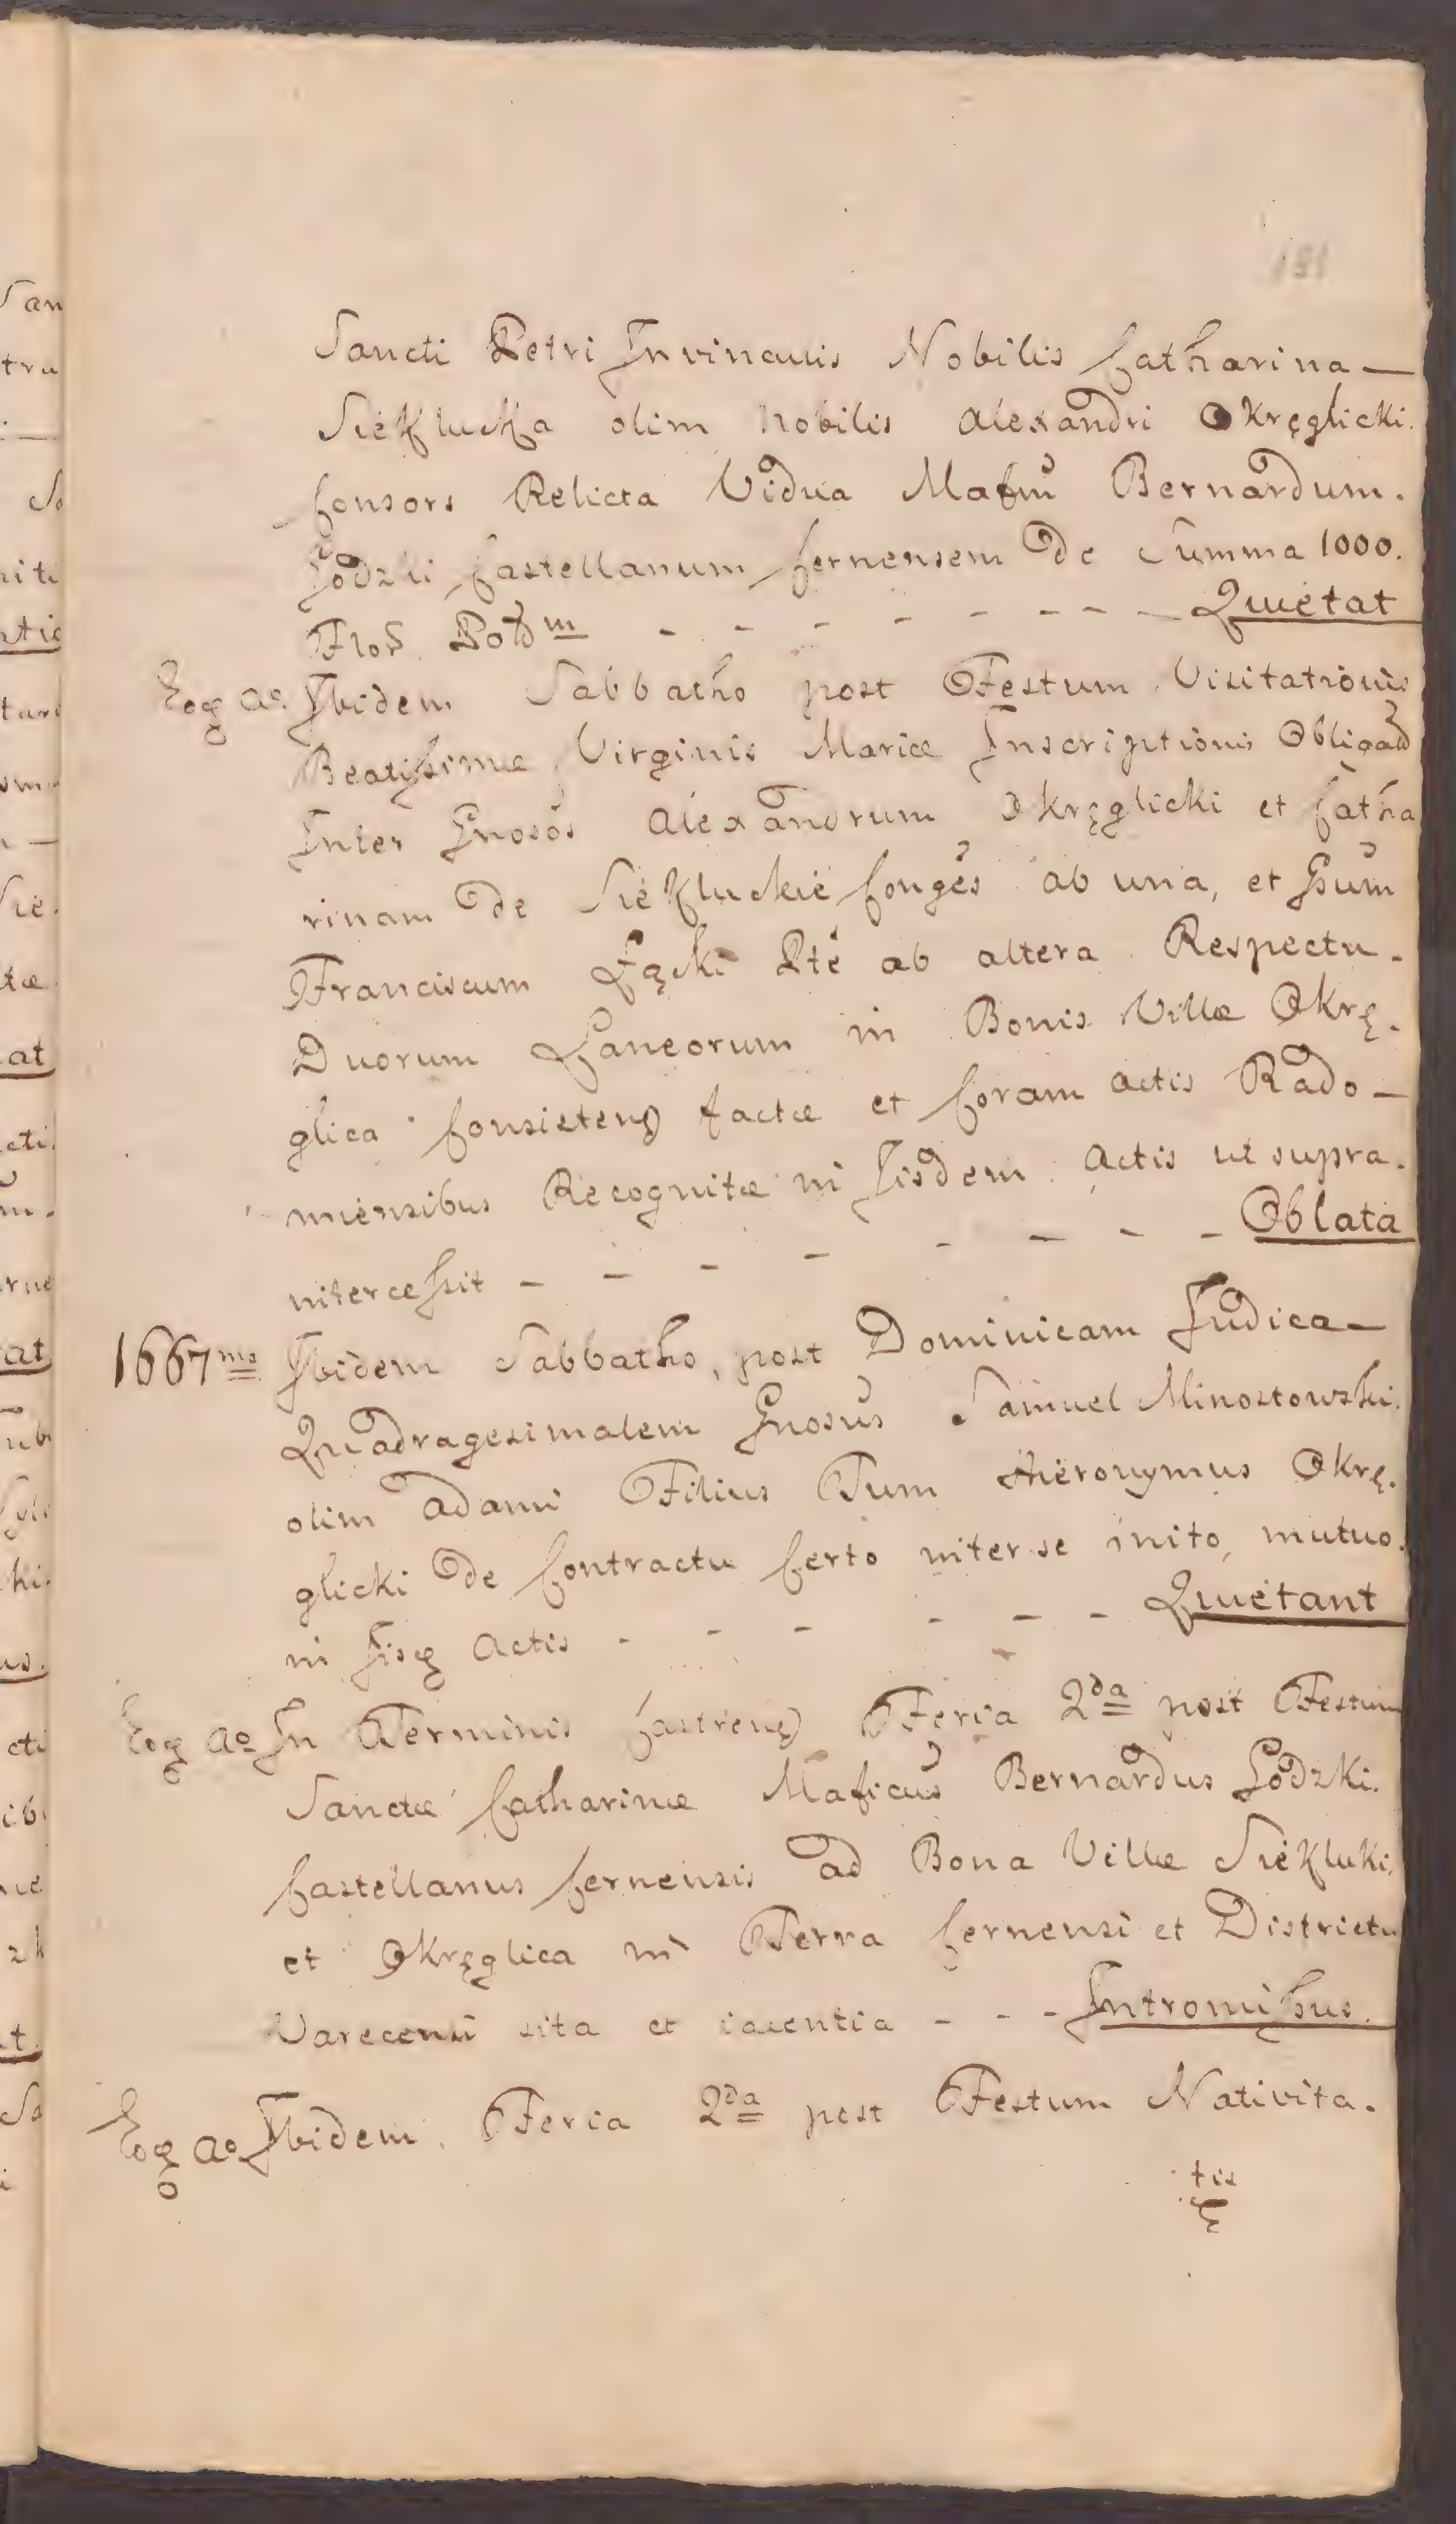 Sancti Petri Invinculis Nobilis Catharina —
Siekłucka olim Nobilis Alexandri Okręglicki.
Consors Relicta Vidua Mafcum Bernardum.
Łodzki Castellanum Cernensem de Summa 1000.
Flor. Pold m - - - - - - - Quietat
Eoq Ao. Ibidem Sabbatho post Festum Visitationis
Beatissimæ Virginis Mariæ Inscriptionis Obligato
Inter Gnosos Alexandrum Okręglicki et Catha
rinam de Siekłuckie Conges ab una, et Gsum
Franciscum Łącki Pte ab altera Respectu.
Duorum Laneorum in Bonis Villæ Okrę.
glica Consisteng factæ et Coram Actis Rado —
miensibus Recognitæ in Iisdem Actis ut supra.
intercessit - - - - - - - - Oblata
1667mo Ibidem Sabbatho, post Dominicam Judica —
Quadragesimalem Gnosus Samuel Minostowski.
olim Adami Filius Tum Hieronymus Okrę.
glicki de Contractu Certo inter se inito, mutuo.
in Iisq Actis - - - - - - Quietant
Eoq Ao In Terminis Castreng Feria 2da post Festum
Sanctæ Catharinæ Maficus Bernardus Łodzki.
Castellanus Cernensis ad Bona Villæ Siekłuki.
et Okręglica in Terra Cernensi et Districtu
Varecensi sita et iacentia - - - Intromissus.
Eoq Ao Ibidem Feria 2da post Festum Nativita.
tis